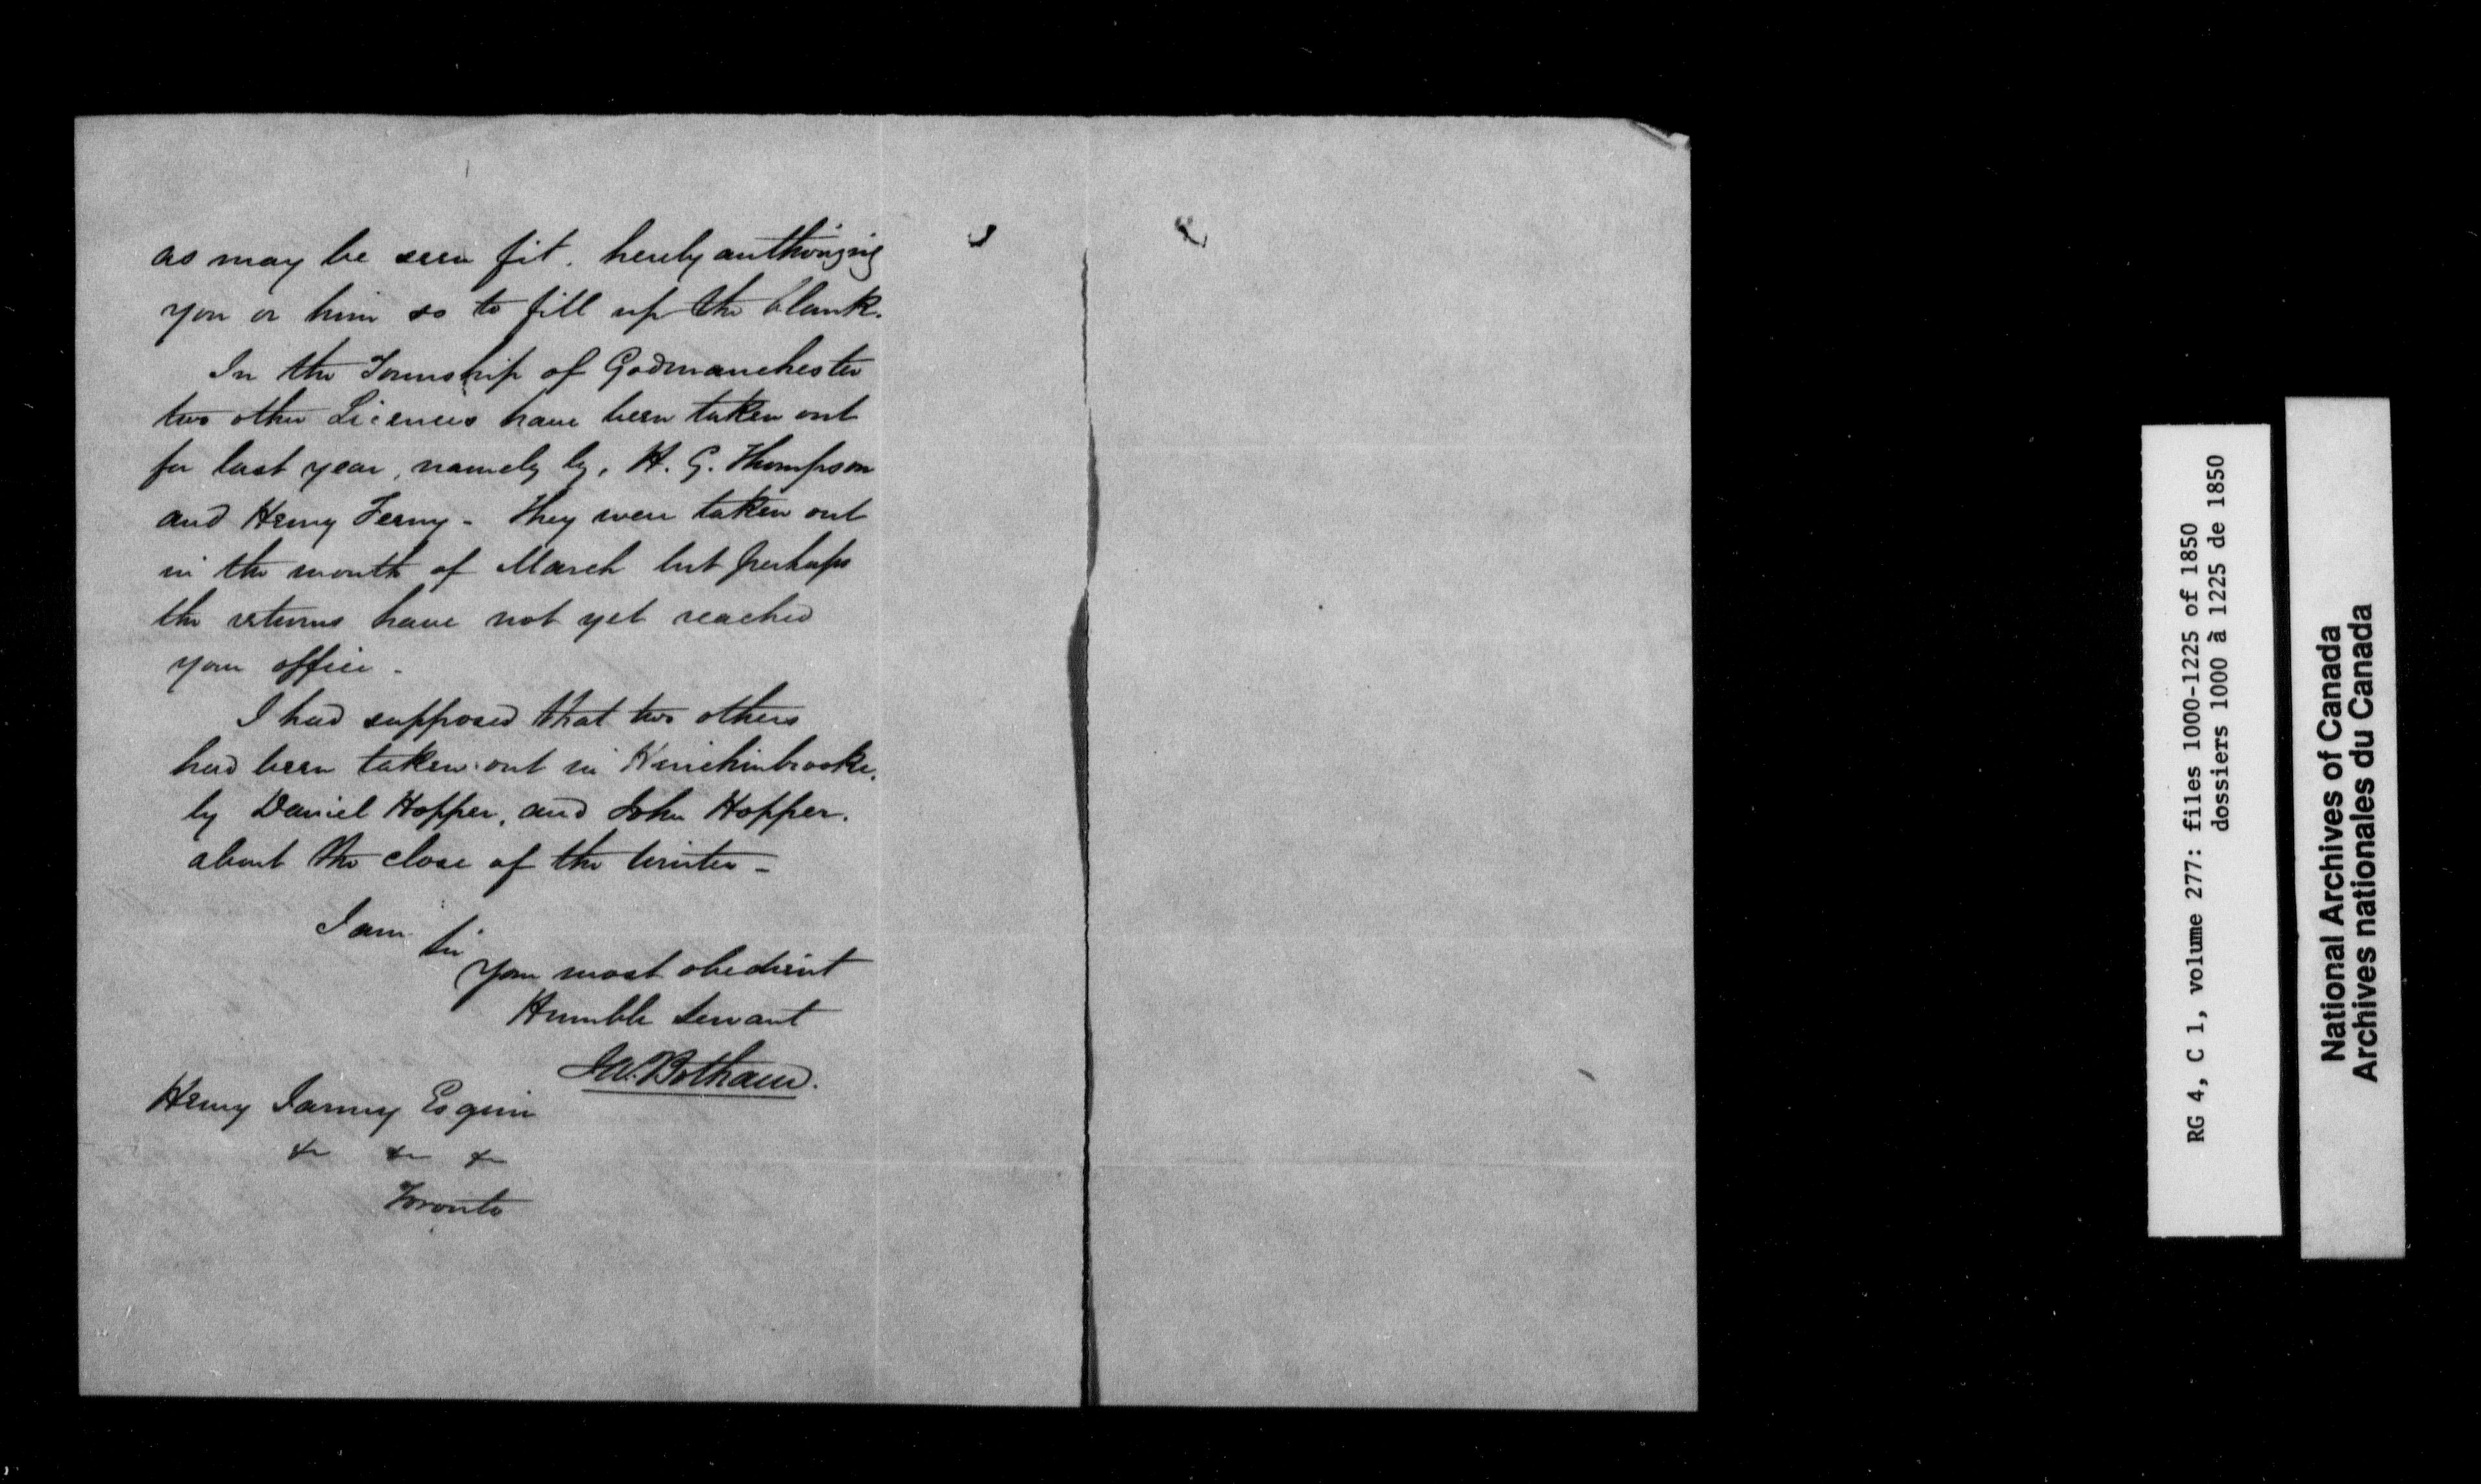 as may be seen fit. hereby authorizing
you or him so to fill up the blank.
In the Township of Godmanchester
two other Licences have been taken out
for last year, namely by, H. G. Thompson
and Henry Ferny - They were taken out
in the month of March but perhaps
the returns have not yet reached
your office -
I had supposed that two others
had been taken out in Hinchinbrooke.
by Daniel Hopper, and John Hopper.
about the close of the Winter -
I am Sir
Your most obedient
Humble Servant
Botham.
Henry Esquire
&c &c &c
Toronto
RG 4, C 1, volume 277: files 1000-1225 of 1850
dossiers 1000 à 1225 de 1850
National Archives of Canada
Archives nationales du Canada